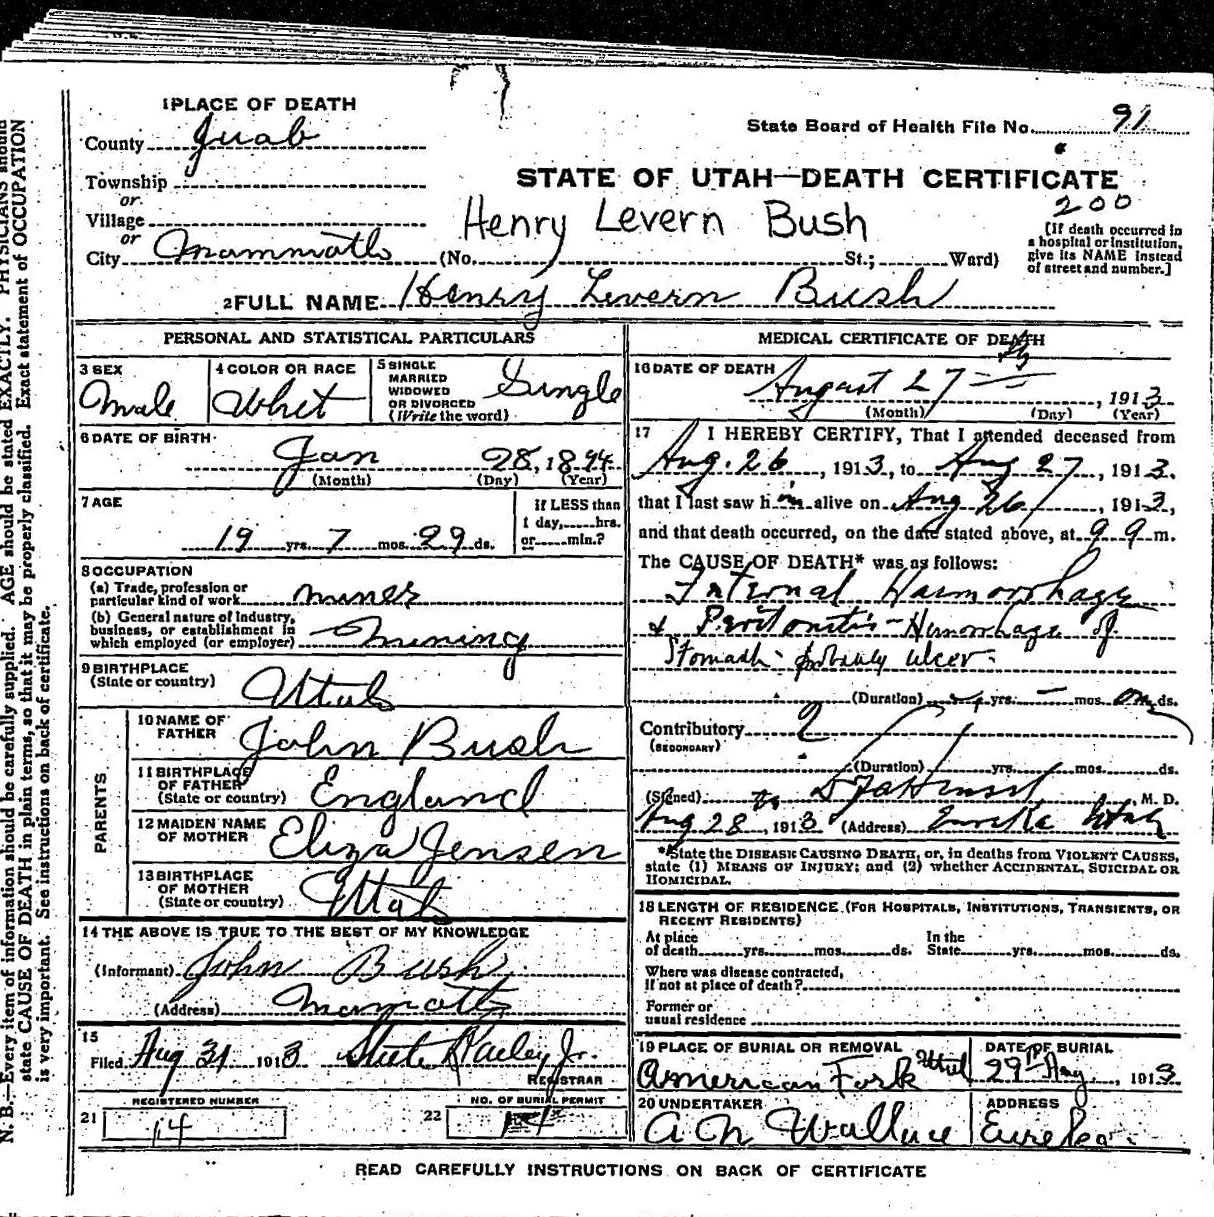 1 PLACE OF DEATH
County Juab
State Board of Health File No. 91
Township
or
Village
or
City Mammoth (No. St.; Ward)
STATE OF UTAH—DEATH CERTIFICATE
200
Henry Levern Bush
[If death occurred in a hospital or institution, give its NAME instead of street and number.]
2 FULL NAME Henry Levern Bush
PERSONAL AND STATISTICAL PARTICULARS
3 SEX
Male
4 COLOR OR RACE
Whit
5 SINGLE
MARRIED
WIDOWED
OR DIVORCED
(Write the word)
Single
6 DATE OF BIRTH
Jan 28, 1894
(Month) (Day) (Year)
7 AGE
19 yrs. 7 mos. 29 ds.
If LESS than
1 day, hrs.
or min.?
8 OCCUPATION
(a) Trade, profession or
particular kind of work miner
(b) General nature of industry,
business, or establishment in
which employed (or employer) Mining
9 BIRTHPLACE
(State or country)
Utah
PARENTS
10 NAME OF
FATHER
John Bush
11 BIRTHPLACE
OF FATHER
(State or country)
England
12 MAIDEN NAME
OF MOTHER
Eliza Jensen
13 BIRTHPLACE
OF MOTHER
(State or country)
Utah
14 THE ABOVE IS TRUE TO THE BEST OF MY KNOWLEDGE
(Informant) John Bush
(Address) Mammoth
15
Filed Aug 31 1913
Jr.
REGISTRAR
21
REGISTERED NUMBER
14
22
NO. OF BURIAL PERMIT
MEDICAL CERTIFICATE OF DEATH
16 DATE OF DEATH
August 27, 1913
(Month) (Day) (Year)
17 I HEREBY CERTIFY, That I attended deceased from
Aug. 26, 1913, to Aug 27, 1913.
that I last saw h im alive on Aug 26, 1913,
and that death occurred, on the date stated above, at 9 9 m.
The CAUSE OF DEATH* was as follows:
Internal Haemorrhage
& Peritonitis - Hemorrhage of
Stomach - probably ulcer.
(Duration) yrs. mos. one ds.
Contributory
(SECONDARY)
(Duration) yrs. mos. ds.
(Signed) M. D.
Aug 28, 1913 (Address) Eureka Utah
*State the DISEASE CAUSING DEATH, or, in deaths from VIOLENT CAUSES,
state (1) MEANS OF INJURY; and (2) whether ACCIDENTAL, SUICIDAL OR
HOMICIDAL.
18 LENGTH OF RESIDENCE (FOR HOSPITALS, INSTITUTIONS, TRANSIENTS, OR
RECENT RESIDENTS)
At place
of death yrs. mos. ds.
In the
State yrs. mos. ds.
Where was disease contracted,
if not at place of death?
Former or
usual residence
19 PLACE OF BURIAL OR REMOVAL
American Fork Utah
DATE OF BURIAL
29 Aug, 1913
20 UNDERTAKER
A N Wallace
ADDRESS
Eureka.
READ CAREFULLY INSTRUCTIONS ON BACK OF CERTIFICATE
N. B.—Every item of information should be carefully supplied. AGE should be stated EXACTLY. PHYSICIANS should
state CAUSE OF DEATH in plain terms, so that it may be properly classified. Exact statement of OCCUPATION
is very important. See instructions on back of certificate.